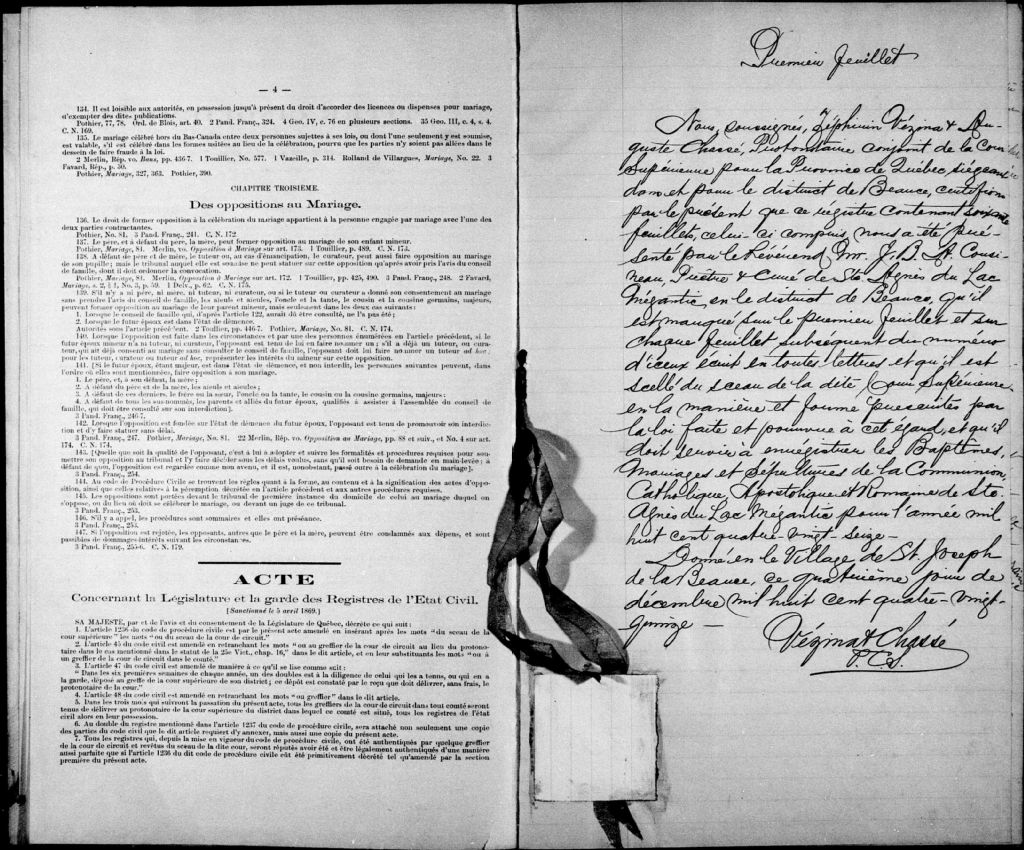 — 4 —
134. Il est loisible aux autorités, en possession jusqu'à présent du droit d'accorder des licences ou dispenses pour mariage,
d'exempter des dites publications.
Pothier, 77, 78. Ord. de Blois, art. 40. 2 Pand. Franç., 324. 4 Geo. IV, c. 76 en plusieurs sections. 35 Geo. III, c. 4, s. 4.
C. N. 169.
135. Le mariage célébré hors du Bas-Canada entre deux personnes sujettes à ses lois, ou dont l'une seulement y est soumise,
est valable, s'il est célébré dans les formes usitées au lieu de la célébration, pourvu que les parties n'y soient pas allées dans le
dessein de faire fraude à la loi.
2 Merlin, Rép. vo. Bans, pp. 436-7. 1 Touillier, No. 577. 1 Vazeille, p. 314. Rolland de Villargues, Mariage, No. 22. 3
Favard, Rép., p. 50.
Pothier, Mariage, 327, 363. Pothier, 390.
CHAPITRE TROISIEME.
Des oppositions au Mariage.
136. Le droit de former opposition à la célébration du mariage appartient à la personne engagée par mariage avec l'une des
deux parties contractantes.
Pothier, No. 81. 3 Pand. Franç., 241. C. N. 172.
137. Le père, et à défaut du père, la mère, peut former opposition au mariage de son enfant mineur.
Pothier, Mariage, 81. Merlin, vo. Opposition à Mariage sur art. 173. 1 Touillier, p. 489. C. N. 173.
138. A défaut de père et de mère, le tuteur ou, au cas d'émancipation, le curateur, peut aussi faire opposition au mariage
de son pupille; mais le tribunal auquel elle est soumise ne peut statuer sur cette opposition qu'après avoir pris l'avis du conseil
de famille, dont il doit ordonner la convocation.
Pothier, Mariage, 81. Merlin, Opposition à Mariage sur art. 172. 1 Touillier, pp. 425, 490. 3 Pand. Franç., 248. 2 Favard,
Mariage, s. 2, § 1, No. 3, p. 59. 1 Delv., p. 62. C. N. 175.
139. S'il n'y a ni père, ni mère, ni tuteur, ni curateur, ou si le tuteur ou curateur a donné son consentement au mariage
sans prendre l'avis du conseil de famille, les aïeuls et aïeules, l'oncle et la tante, le cousin et la cousine germains, majeurs,
peuvent former opposition au mariage de leur parent mineur, mais seulement dans les deux cas suivants:
1. Lorsque le conseil de famille qui, d'après l'article 122, aurait dû être consulté, ne l'a pas été;
2. Lorsque le futur époux est dans l'état de démence.
Autorités sous l'article précédent. 2 Toullier, pp. 446-7. Pothier, Mariage, No. 81. C. N. 174.
140. Lorsque l'opposition est faite dans les circonstances et par une des personnes énumérées en l'article précédent, si le
futur époux mineur n'a ni tuteur, ni curateur, l'opposant est tenu de lui en faire nommer un; s'il a déjà un tuteur, ou cura-
teur, qui ait déjà consenti au mariage sans consulter le conseil de famille, l'opposant doit lui faire nommer un tuteur ad hoc,
pour les tuteur, curateur ou tuteur ad hoc, représenter les intérêts du mineur sur cette opposition.
141. [Si le futur époux, étant majeur, est dans l'état de démence, et non interdit, les personnes suivantes peuvent, dans
l'ordre où elles sont mentionnées, faire opposition à son mariage.
1. Le père, et, à son défaut, la mère;
2. A défaut du père et de la mère, les aïeuls et aïeules;
3. A défaut de ces derniers, le frère ou la sœur, l'oncle ou la tante, le cousin ou la cousine germains, majeurs;
4. A défaut de tous les sus-nommés, les parents et alliés du futur époux, qualifiés à assister à l'assemblée du conseil de
famille, qui doit être consulté sur son interdiction].
3 Pand. Franç., 246-7.
142. Lorsque l'opposition est fondée sur l'état de démence du futur époux, l'opposant est tenu de promouvoir son interdic-
tion et d'y faire statuer sans délai.
3 Pand. Franç., 247. Pothier, Mariage, No. 81. 22 Merlin, Rép. vo. Opposition au Mariage, pp. 88 et suiv., et No. 4 sur art.
174. C. N. 174.
143. [Quelle que soit la qualité de l'opposant, c'est à lui à adopter et suivre les formalités et procédures requises pour sou-
mettre son opposition au tribunal et l'y faire décider sous les délais voulus, sans qu'il soit besoin de demande en main-levée; à
défaut de quoi, l'opposition est regardée comme non avenu, et il est, nonobstant, passé outre à la célébration du mariage].
3 Pand. Franç., 254.
144. Au code de Procédure Civile se trouvent les règles quant à la forme, au contenu et à la signification des actes d'oppo-
sition, ainsi que celles relatives à la péremption décrétée en l'article précédent et aux autres procédures requises.
145. Les oppositions sont portées devant le tribunal de première instance du domicile de celui au mariage duquel on
s'oppose, ou du lieu où doit se célébrer le mariage, ou devant un juge de ce tribunal.
3 Pand. Franç., 253.
146. S'il y a appel, les procédures sont sommaires et elles ont préséance.
3 Pand. Franç., 253.
147. Si l'opposition est rejetée, les opposants, autres que le père et la mère, peuvent être condamnés aux dépens, et sont
passibles de dommages-intérêts suivant les circonstances.
3 Pand. Franç., 255-6. C. N. 179.
ACTE
Concernant la Législature et la garde des Registres de l'Etat Civil.
[Sanctionné le 5 avril 1869.]
SA MAJESTÉ, par et de l'avis et du consentement de la Législature de Québec, décrète ce qui suit:
1. L'article 1236 du code de procédure civile est par le présent acte amendé en insérant après les mots "du sceau de la
cour supérieure" les mots "ou du sceau de la cour de circuit."
2. L'article 45 du code civil est amendé en retranchant les mots "ou au greffier de la cour de circuit au lieu du protono-
taire dans le cas mentionné dans le statut de la 25e Vict., chap. 16," dans le dit article, et en leur substituants les mots "ou à
un greffier de la cour de circuit dans le comté."
3. L'article 47 du code civil est amendé de manière à ce qu'il se lise comme suit:
"Dans les six premières semaines de chaque année, un des doubles est à la diligence de celui qui les a tenus, ou qui en a
la garde, déposé au greffe de la cour supérieure de son district; ce dépôt est constaté par le reçu que doit délivrer, sans frais, le
protonotaire de la cour."
4. L'article 48 du code civil est amendé en retranchant les mots "ou greffier" dans le dit article.
5. Dans les trois mois qui suivront la passation du présent acte, tous les greffiers de la cour de circuit dans tout comté seront
tenus de délivrer au protonotaire de la cour supérieure du district dans lequel ce comté est situé, tous les registres de l'état
civil alors en leur possession.
6. Au double du registre mentionné dans l'article 1237 du code de procédure civile, sera attaché non seulement une copie
des parties du code civil que le dit article requiert d'y annexer, mais aussi une copie du présent acte.
7. Tous les registres qui, depuis la mise en vigueur du code de procédure civile, ont été authentiqués par quelque greffier
de la cour de circuit et revêtus du sceau de la dite cour, seront réputés avoir été et être légalement authentiqués d'une manière
aussi parfaite que si l'article 1236 du dit code de procédure civile eût été primitivement décrété tel qu'amendé par la section
première du présent acte.
Premier feuillet
Nous, soussignés, Zéphirin Vézina & Au-
guste Chassé, Protonotaire conjoint de la Cour
Supérieure pour la Province de Québec, siégeant
dans et pour le district de Beauce, certifions
par le présent que ce régistre contenant soixante
feuillets, celui-ci compris, nous a été pré-
senté par le Révérend Mr. J. B. A. Cousi-
neau, Prêtre & Curé de Ste Agnès du Lac
Mégantic, en le district de Beauce, qu'il
est marqué sur le premier feuillet et sur
chaque feuillet subséquent du numéro
d'iceux écrit en toutes lettres et qu'il est
scellé du sceau de la dite Cour Supérieure
en la manière et forme prescrites par
la loi faite et pourvue à cet égard, et qu'il
doit servir à enregistrer les Baptêmes,
Mariages et Sépultures de la Communion
Catholique, Apostolique et Romaine de Ste
Agnès du Lac Mégantic pour l'année mil
huit cent quatre-vingt-seize -
Donné en le Village de St. Joseph
de la Beauce, ce quatrième jour de
décembre mil huit cent quatre-vingt-
quinze -
Vézina & Chassé
P. C. S.